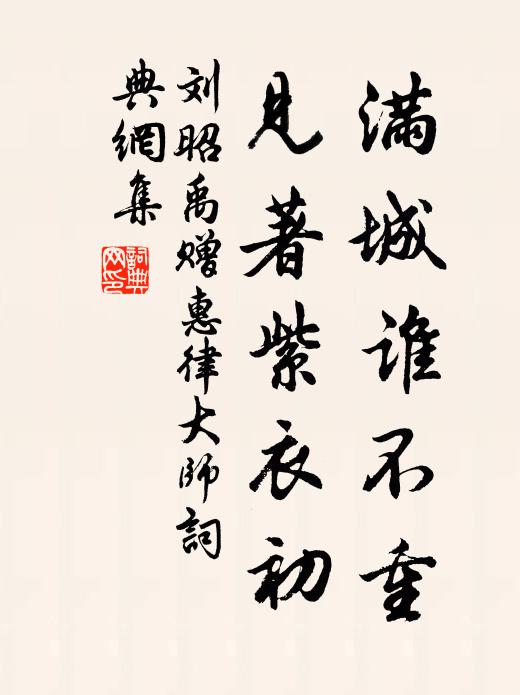 满城谁不重
见著紫衣初
刘昭禹赠惠律大师詞
典網集
詞典网印